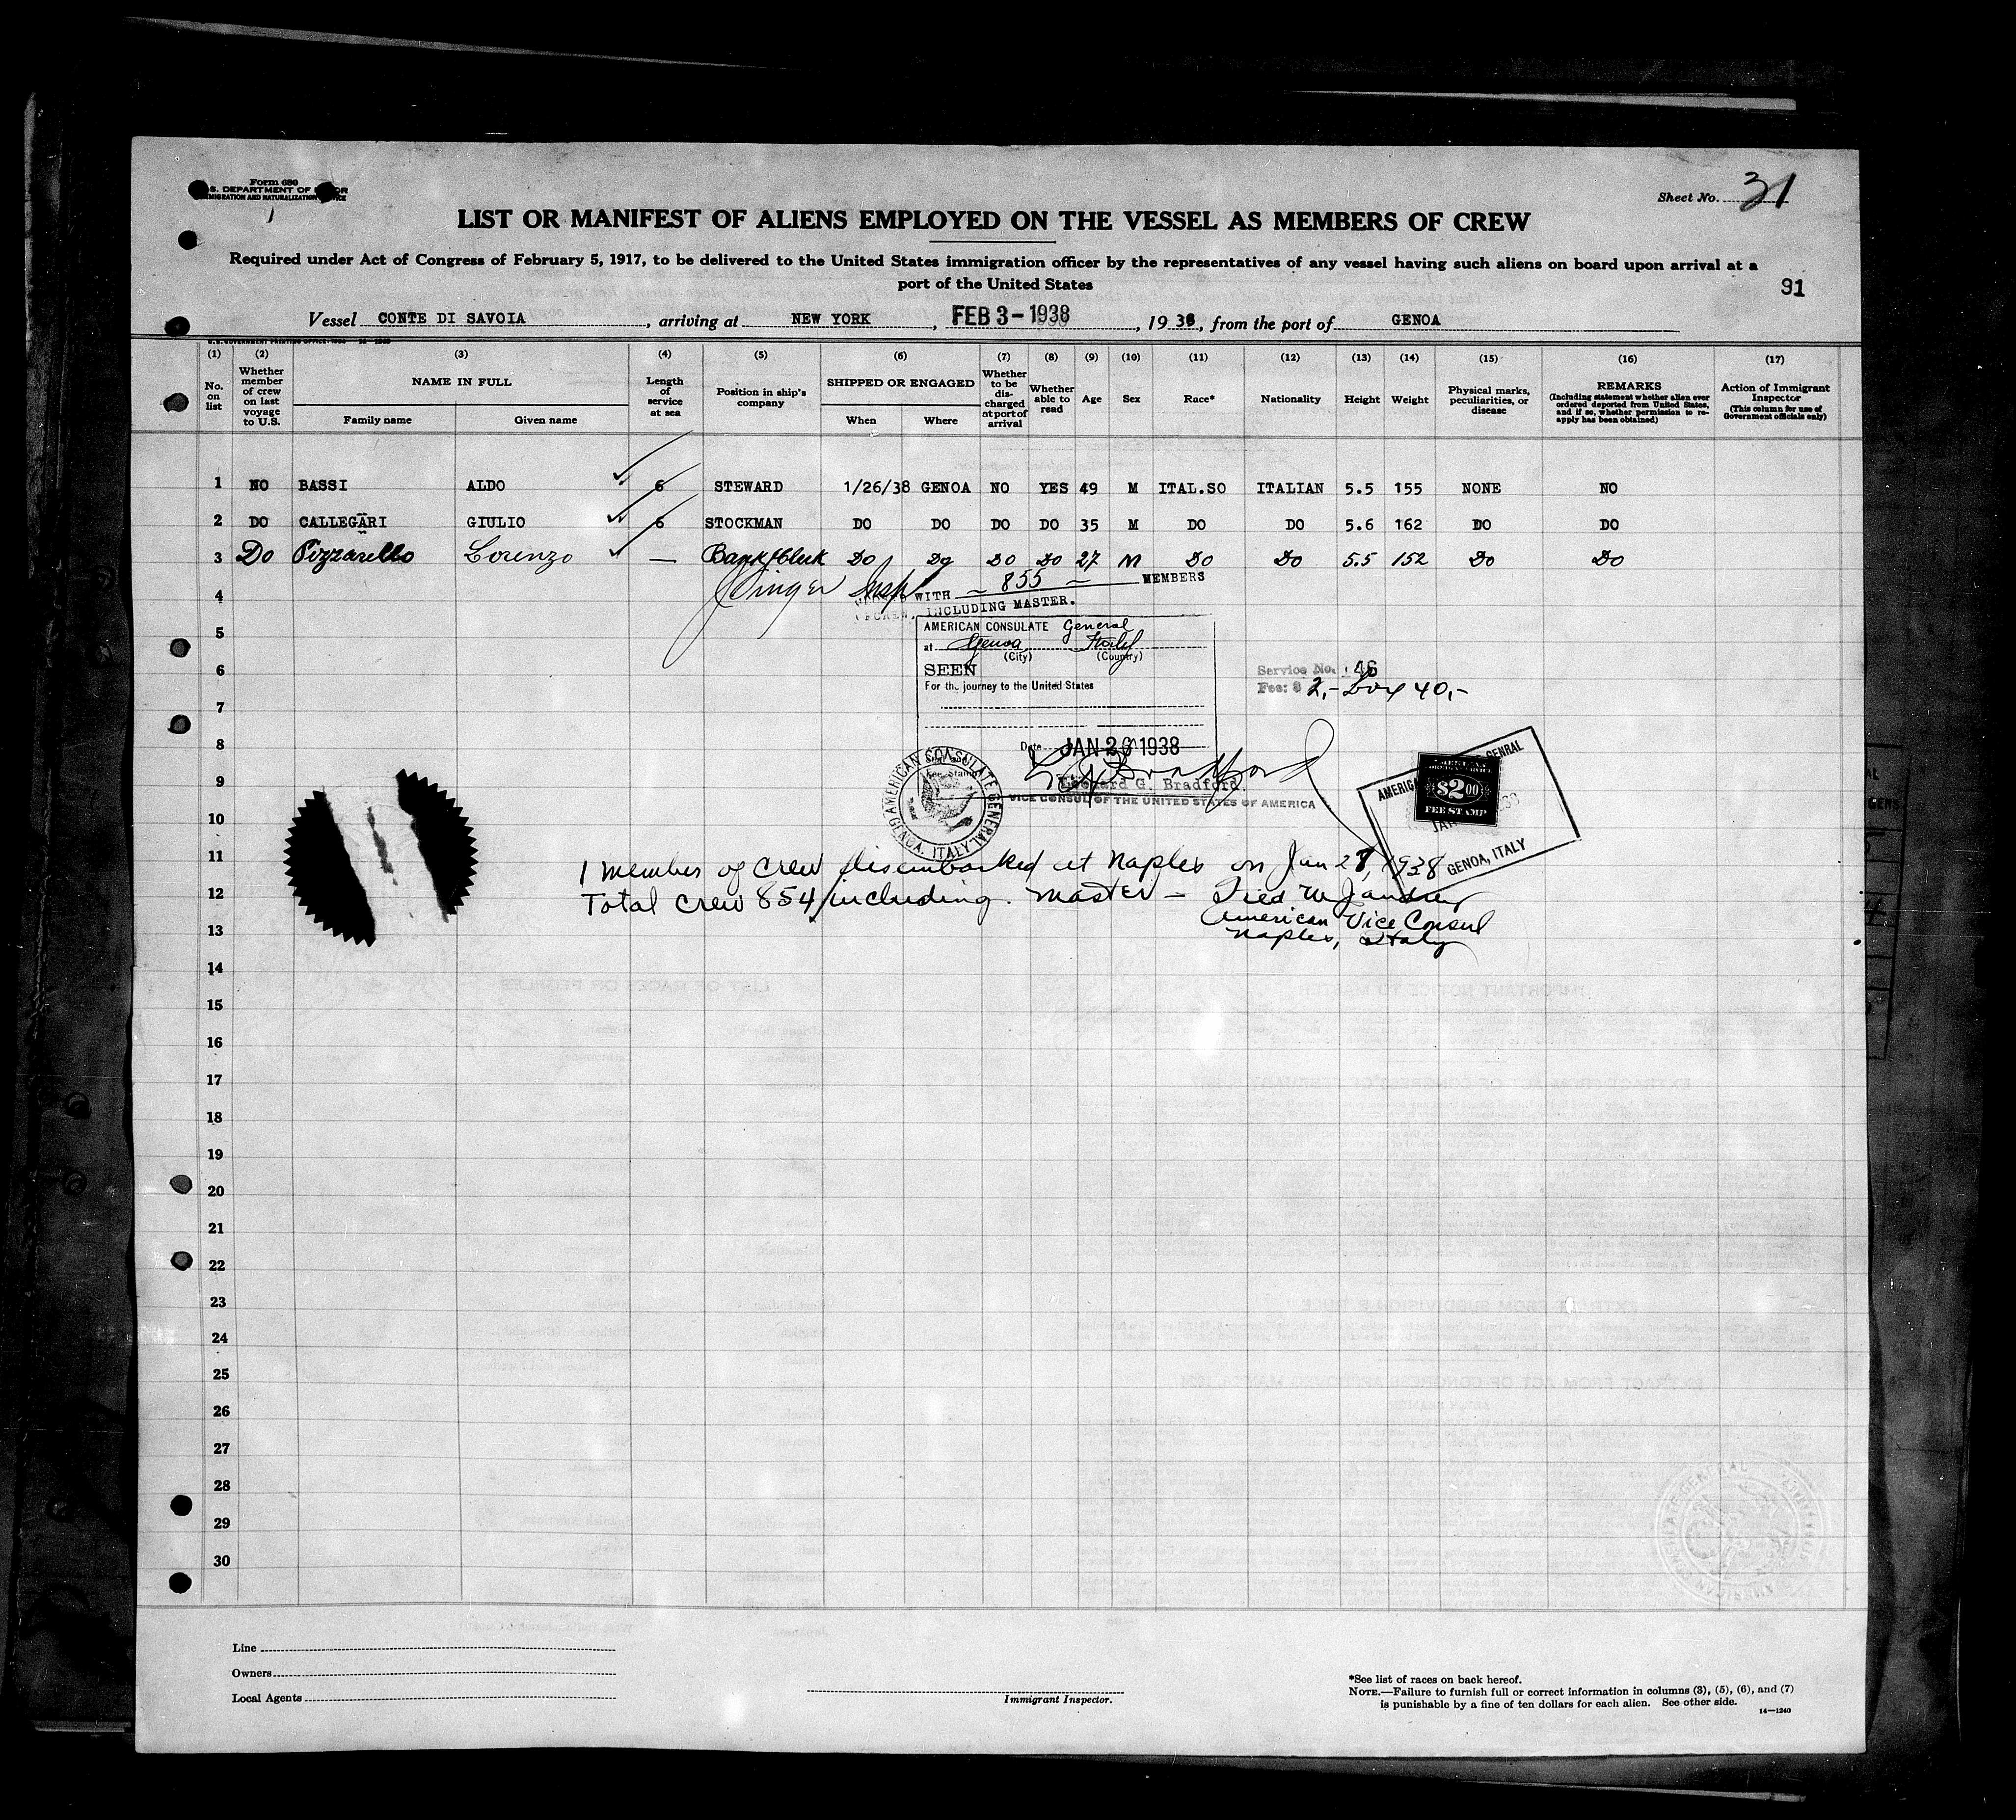 Form 680
U.S. DEPARTMENT OF LABOR
IMMIGRATION AND NATURALIZATION SERVICE
Sheet No. 31
LIST OR MANIFEST OF ALIENS EMPLOYED ON THE VESSEL AS MEMBERS OF CREW
Required under Act of Congress of February 5, 1917, to be delivered to the United States immigration officer by the representatives of any vessel having such aliens on board upon arrival at a
port of the United States
91
Vessel CONTE DI SAVOIA, arriving at NEW YORK, FEB 3 - 1938, 1938, from the port of GENOA
(1) (2) (3) (4) (5) (6) (7) (8) (9) (10) (11) (12) (13) (14) (15) (16) (17)
No. on list
Whether member of crew on last voyage to U.S.
NAME IN FULL
Family name Given name
Length of service at sea
Position in ship's company
SHIPPED OR ENGAGED
When Where
Whether to be discharged at port of arrival
Whether able to read
Age
Sex
Race*
Nationality
Height
Weight
Physical marks, peculiarities, or disease
REMARKS
(Including statement whether alien ever ordered deported from United States, and if so, whether permission to reapply has been obtained)
Action of Immigrant Inspector
(This column for use of Government officials only)
1 NO BASSI ALDO 6 STEWARD 1/26/38 GENOA NO YES 49 M ITAL.SO ITALIAN 5.5 155 NONE NO
2 DO CALLEGARI GIULIO 6 STOCKMAN DO DO DO DO 35 M DO DO 5.6 162 DO DO
3 Do Pizzarello Lorenzo — Bank Clerk Do Do Do Do 27 M Do Do 5.5 152 Do Do
Singer Insp
WITH — 855 — MEMBERS
4
INCLUDING MASTER.
AMERICAN CONSULATE General
5
at Genoa Italy
(City) (Country)
6
SEEN
Service No. 46
For the journey to the United States
Fee: $ 2,- Lox 40,-
7
8
Date JAN 26 1938
9
Leonard G. Bradford.
VICE CONSUL OF THE UNITED STATES OF AMERICA
AMERICAN CONSULATE GENERAL GENOA, ITALY
$2.00
FEE STAMP
GENOA, ITALY
10
11
1 member of crew disembarked at Naples on Jan 27, 1938
12
Total crew 854 including master —
American Vice Consul
13
Naples, Italy
14
15
16
17
18
19
20
21
22
23
24
25
26
27
28
29
30
Line
Owners
Local Agents
Immigrant Inspector.
*See list of races on back hereof.
NOTE.—Failure to furnish full or correct information in columns (3), (5), (6), and (7)
is punishable by a fine of ten dollars for each alien. See other side.
14—1240